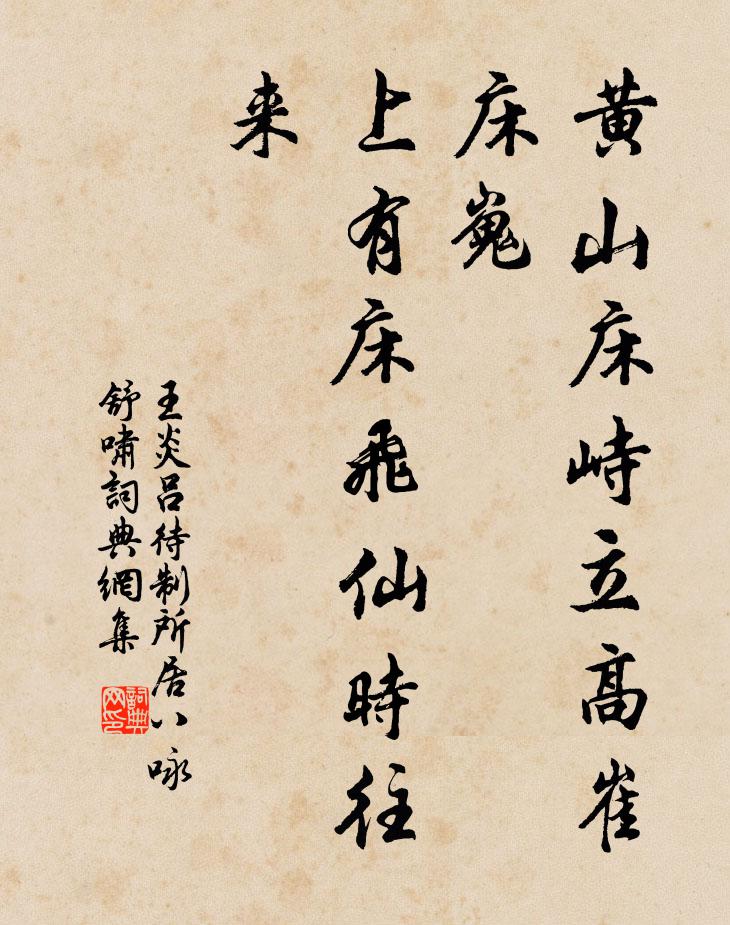 黄山床峙立高崔
床嵬
上有床飛仙時往
来
王炎吕待制所居八咏
舒嘯詞典網集
詞典网印